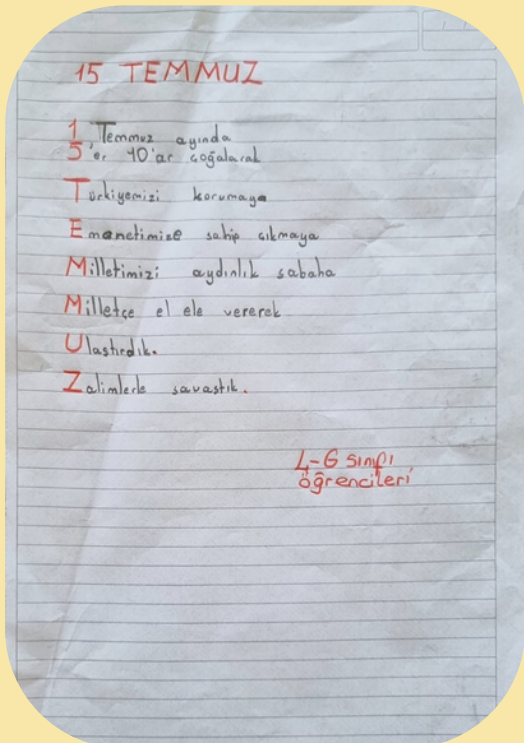 15 TEMMUZ
1 Temmuz ayında
5'er 10'ar çoğalarak
Türkiyemizi korumaya
Emanetimize sahip çıkmaya
Milletimizi aydınlık sabaha
Milletçe el ele vererek
Ulaştırdık.
Zalimlerle savaştık.
4-G sınıfı
öğrencileri